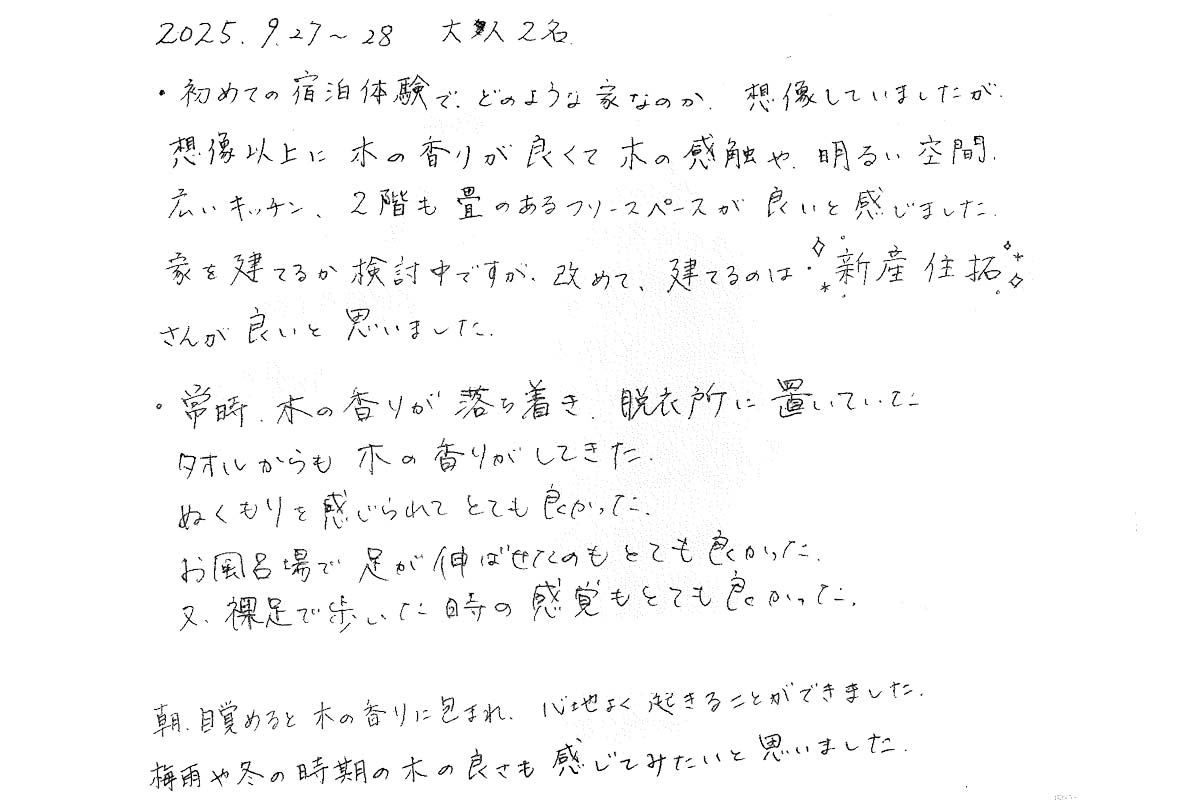 2025.9.27～28 大人2名.
・初めての宿泊体験で、どのような家なのか、想像していましたが、
想像以上に木の香りが良くて木の感触や、明るい空間、
広いキッチン、2階も畳のあるフリースペースが良いと感じました。
家を建てるか検討中ですが、改めて、建てるのは新産住拓
さんが良いと思いました。
・常時、木の香りが落ち着き、脱衣所に置いていた
タオルからも木の香りがしてきた。
ぬくもりを感じられてとても良かった。
お風呂場で足が伸ばせたのもとても良かった。
又、裸足で歩いた時の感覚もとても良かった。
朝、目覚めると木の香りに包まれ、心地よく起きることができました。
梅雨や冬の時期の木の良さも感じてみたいと思いました。